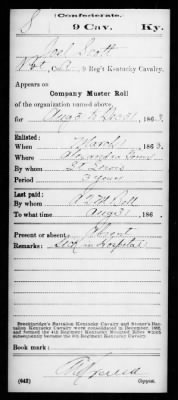 Confederate.
S
9 Cav.
Ky.
Joel Scott
Pvt, Co. A, 9 Reg't Kentucky Cavalry.
Appears on
Company Muster Roll
of the organization named above
for Aug 31 to Dec 31, 1863.
Enlisted:
When 7 March, 1863.
Where
By whom Lt
Period 3 years
Last paid:
By whom
To what time Aug 31, 186 .
Present or absent Absent
Remarks: Sick in hospital
Breckinridge's Battalion Kentucky Cavalry and Stoner's Battalion
Kentucky Cavalry were consolidated in December, 1862,
and formed the 4th Regiment Kentucky Mounted Rifles which
subsequently became the 9th Regiment Kentucky Cavalry.
Book mark:
(642)
Copyist.